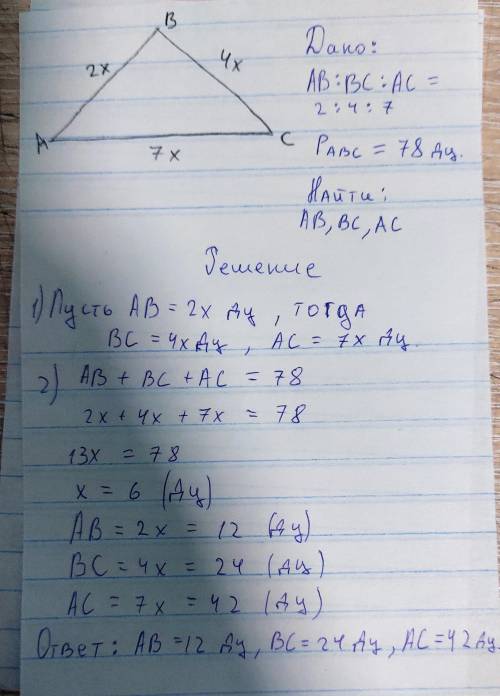 B
2x
4x
A
C
7x
Дано:
AB:BC:AC =
2:4:7
PABC = 78 Дц.
Найти:
AB, BC, AC
Решение
1) Пусть AB = 2x Дц, тогда
BC = 4x Дц, AC = 7x Дц.
2) AB + BC + AC = 78
2x + 4x + 7x = 78
13x = 78
x = 6 (Дц)
AB = 2x = 12 (Дц)
BC = 4x = 24 (Дц)
AC = 7x = 42 (Дц)
Ответ: AB = 12 Дц, BC = 24 Дц, AC = 42 Дц.